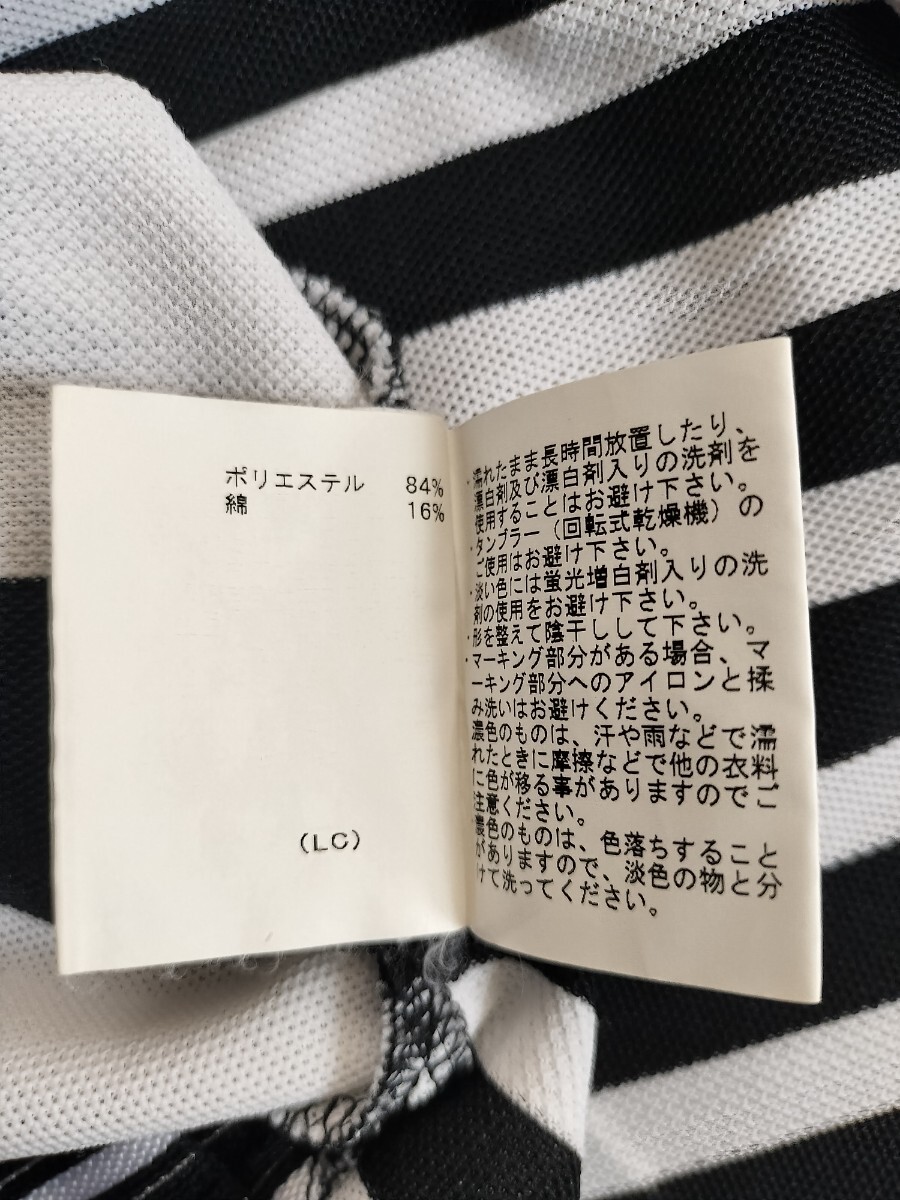 ポリエステル 84%
綿 16%
(LC)
・濡れたまま長時間放置したり、
漂白剤及び漂白剤入りの洗剤を
使用することはお避け下さい。
・タンブラー（回転式乾燥機）の
ご使用はお避け下さい。
・淡い色には蛍光増白剤入りの洗
剤の使用をお避け下さい。
・形を整えて陰干しして下さい。
・マーキング部分がある場合、マ
ーキング部分へのアイロンと揉
み洗いはお避けください。
濃色のものは、汗や雨などで濡
れたときに摩擦などで他の衣料
に色が移る事がありますのでご
注意ください。
濃色のものは、色落ちすること
がありますので、淡色の物と分
けて洗ってください。